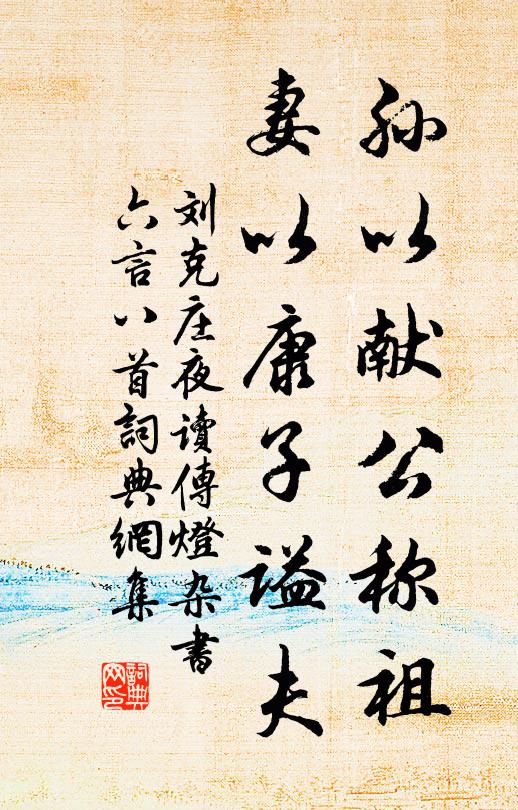 孙以献公称祖
妻以康子谥夫
刘克庄夜读傳燈杂書
六言八首詞典網集
詞典
网印